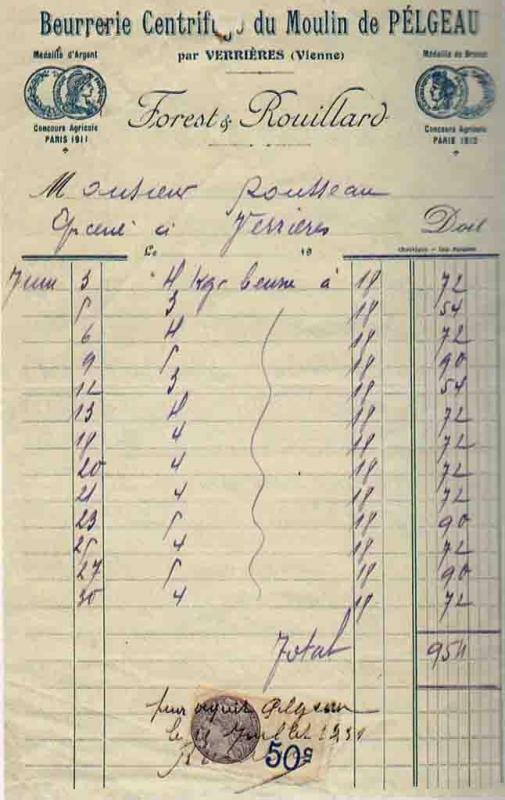 Beurrerie Centrifuge du Moulin de PÉLGEAU
par VERRIÈRES (Vienne)
Médaille d'Argent
Concours Agricole
PARIS 1911
Médaille de Bronze
Concours Agricole
PARIS
Forest & Rouillard
Monsieur Rousseau
à Verrières
Doit
Le 19
Juin 3 4 kgr beurre à 18 72
5 3 18 54
6 4 18 72
9 5 18 90
12 3 18 54
13 4 18 72
18 4 18 72
20 4 18 72
21 4 18 72
23 5 18 90
25 4 18 72
27 5 18 90
30 4 18 72
Total 954
pour acquit Pélgeau
le 11 Juillet 1931
50c